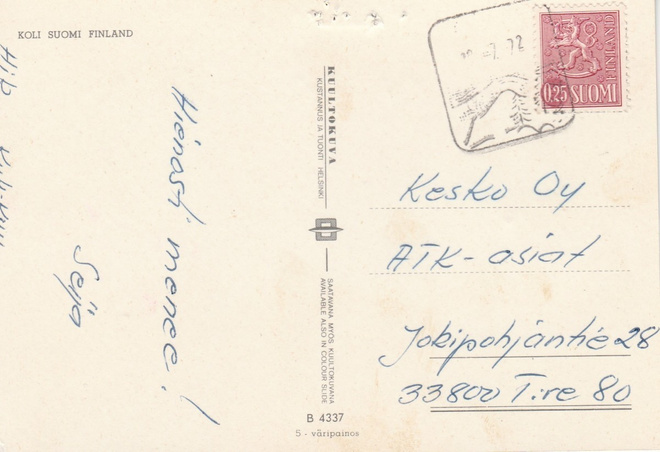 KOLI SUOMI FINLAND
Hienosti menee!
Seija
KUULTOKUVA
KUSTANNUS JA TUONTI HELSINKI
SAATAVANA MYÖS KUULTOKUVANA
AVAILABLE ALSO IN COLOUR SLIDE
B 4337
5 - väripainos
7. 72
FINLAND
0,25 SUOMI
Kesko Oy
ATK-asiat
Jokipohjantie 28
33800 T:re 80